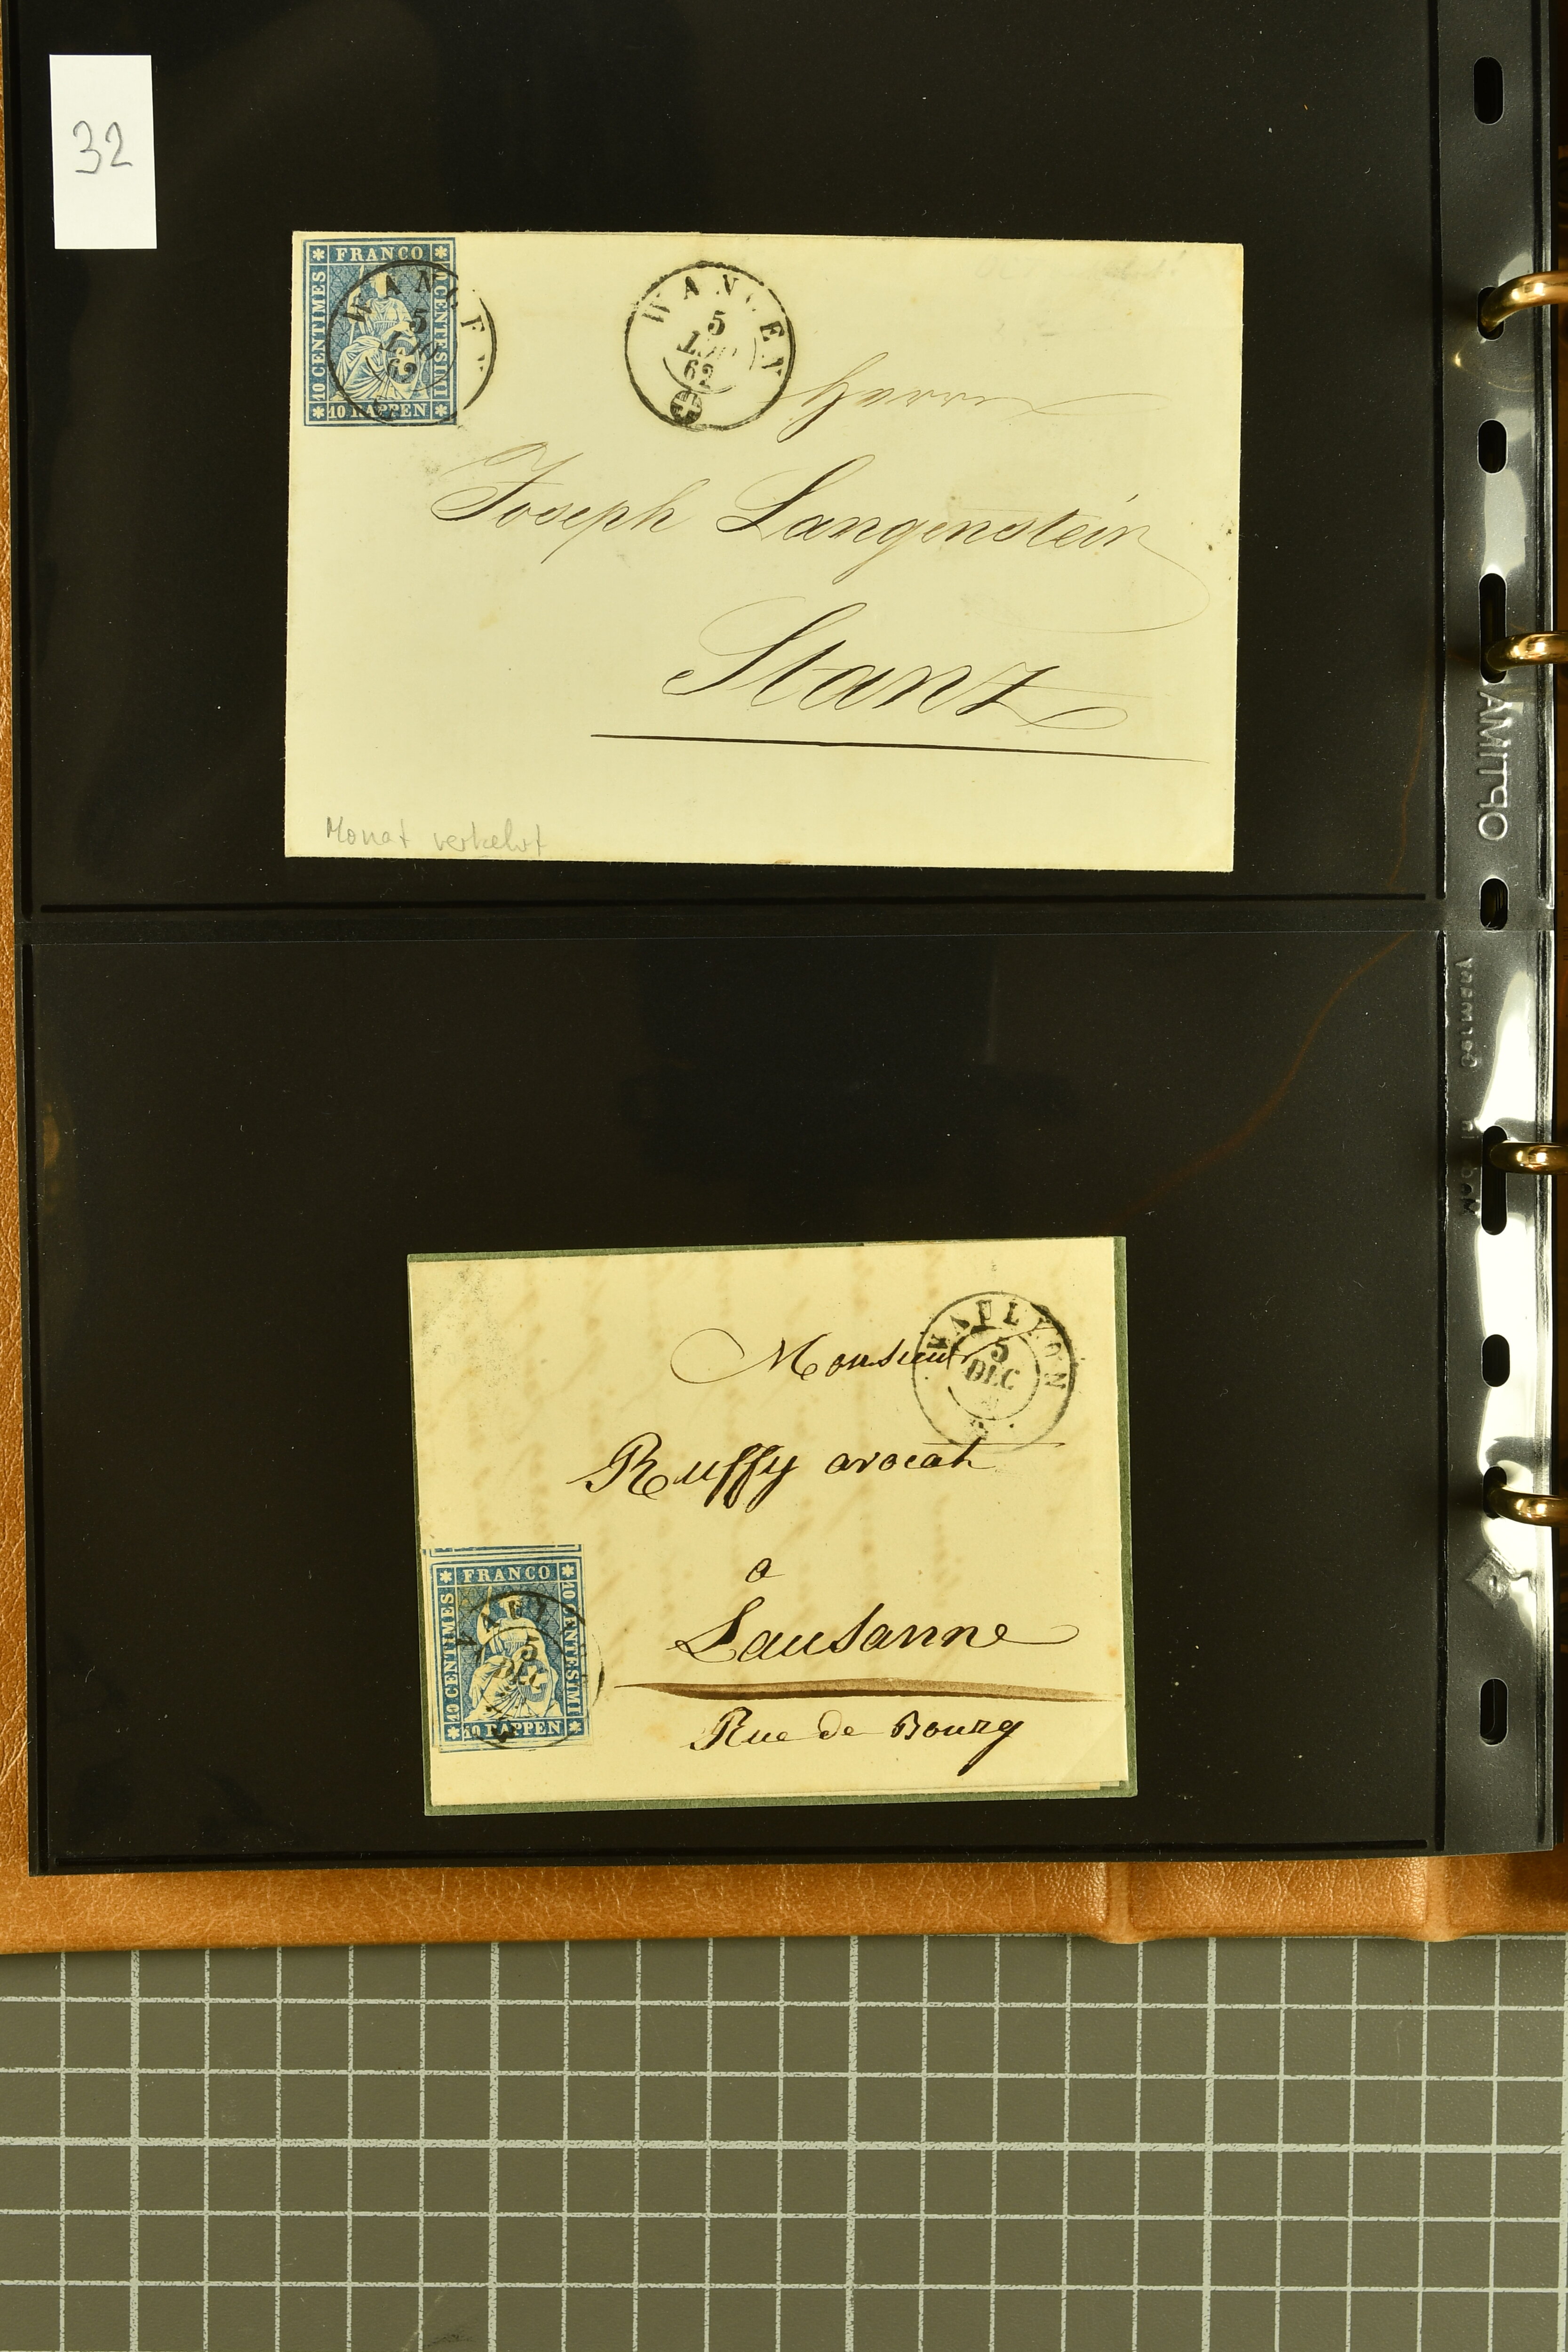 32
FRANCO
10 CENTIMES
10 RAPPEN
WANGEN
5
62
WANGEN
5
62
Herrn
Joseph Langenstein
Stanz
Monat verkehrt
OPTIMA
Monsieur
5
DEC
Ruffy avocat
a
Lausanne
Rue de Bourg
FRANCO
10 CENTIMES
10 CENTESIMI
10 RAPPEN
5
DEC